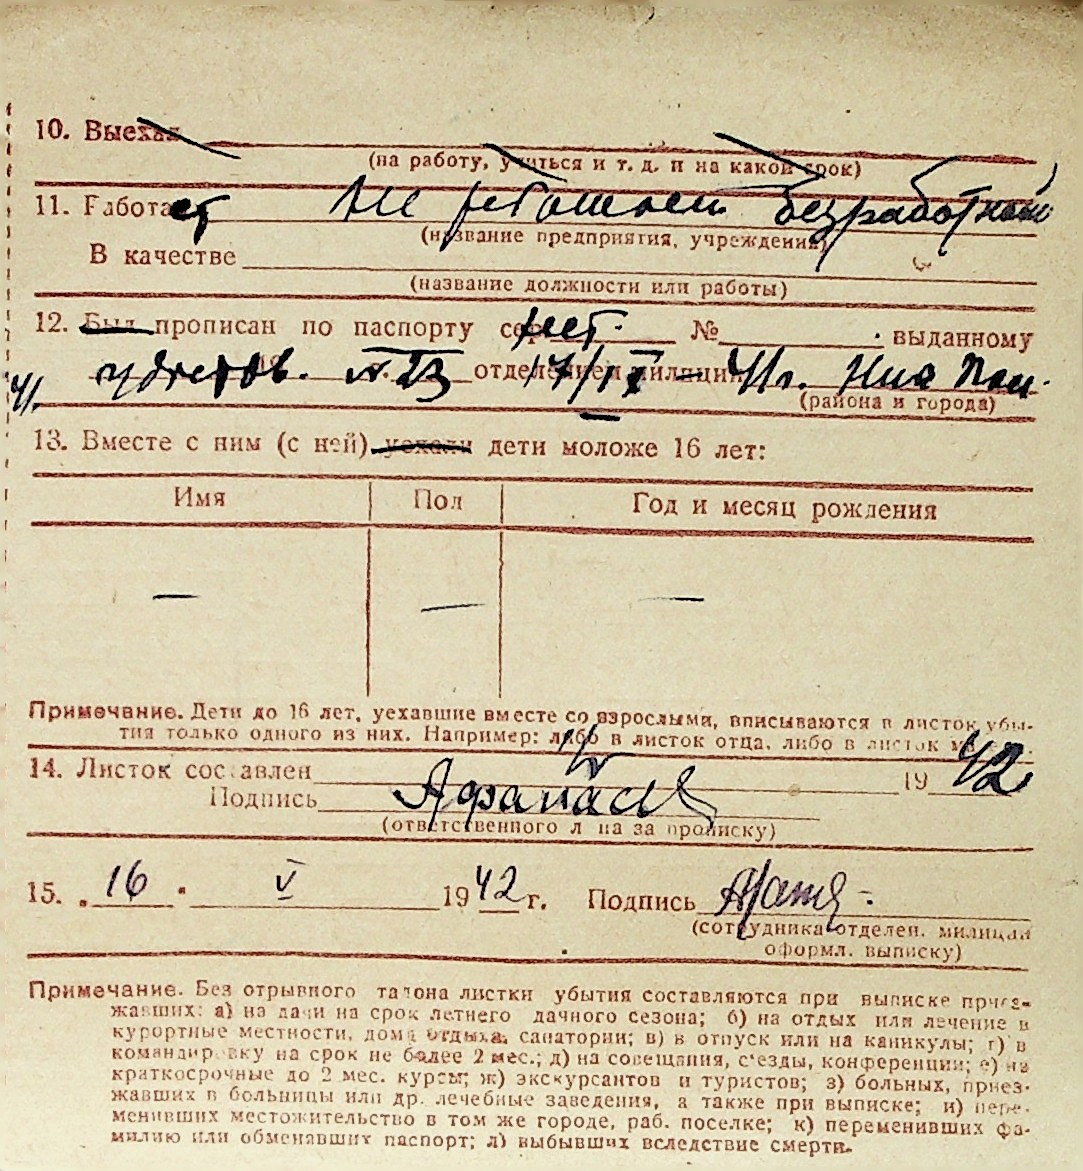 10. Выехал
(на работу, учиться и т. д. и на какой срок)
11. Работает не работает безработный
(название предприятия, учреждения)
В качестве
(название должности или работы)
12. Был прописан по паспорту сер. нет. № выданному
удостов. № 23 отделением милиции 17/IX – 41г.
41.
(района и города)
13. Вместе с ним (с ней) уехали дети моложе 16 лет:
Имя Пол Год и месяц рождения
— — —
Примечание. Дети до 16 лет, уехавшие вместе со взрослыми, вписываются в листок убы-
тия только одного из них. Например: либо в листок отца, либо в листок
14. Листок составлен 1942
Подпись
(ответственного лица за прописку)
15. 16. V 1942 г. Подпись
(сотрудника отделен. милиции
оформл. выписку)
Примечание. Без отрывного талона листки убытия составляются при выписке приез-
жавших: а) на дачи на срок летнего дачного сезона; б) на отдых или лечение в
курортные местности, дома отдыха, санатории; в) в отпуск или на каникулы; г) в
командировку на срок не более 2 мес.; д) на совещания, съезды, конференции; е) на
краткосрочные до 2 мес. курсы; ж) экскурсантов и туристов; з) больных, приез-
жавших в больницы или др. лечебные заведения, а также при выписке; и) пере-
менивших местожительство в том же городе, раб. поселке; к) переменивших фа-
милию или обменявших паспорт; л) выбывших вследствие смерти.